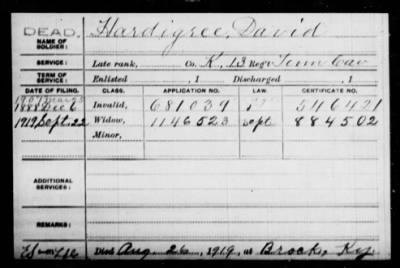 DEAD.
NAME OF SOLDIER: Hardigree, David
SERVICE: Late rank, Co. K, 13 Reg't Tenn Cav
TERM OF SERVICE: Enlisted , 1 Discharged , 1
DATE OF FILING. CLASS. APPLICATION NO. LAW. CERTIFICATE NO.
1888 Dec 6 Invalid, 681039 546421
1919 Sept. 22 Widow, 1146523 Sept 884502
Minor,
ADDITIONAL SERVICES:
REMARKS:
Died Aug 26, 1919, at Brock, Ky.